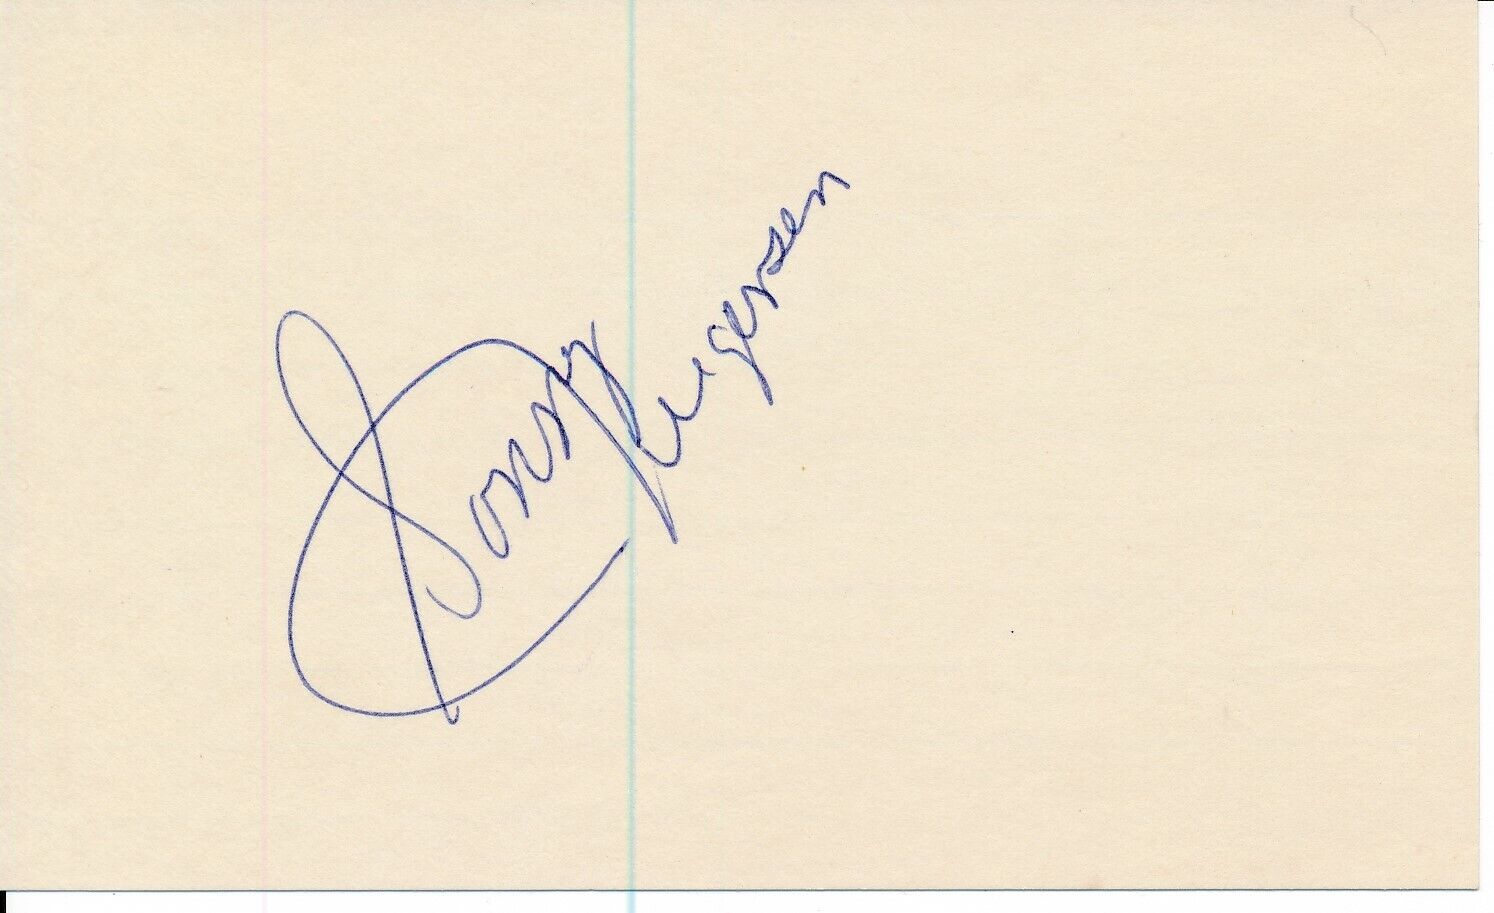 Sonny Jurgensen